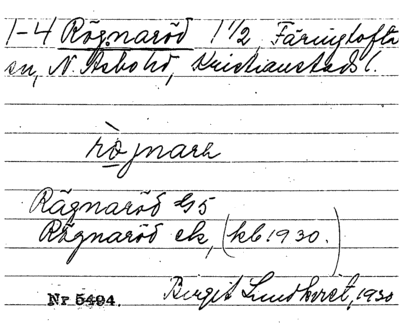 1-4 Rögnaröd 1 1/2, Färingtofta
sn, N. Åsbo hd, Kristianstads l.
Rågnaröd G5
Rögnaröd ek, (kb 1930.)
Nr 5494. Birgit Lundkvist, 1930